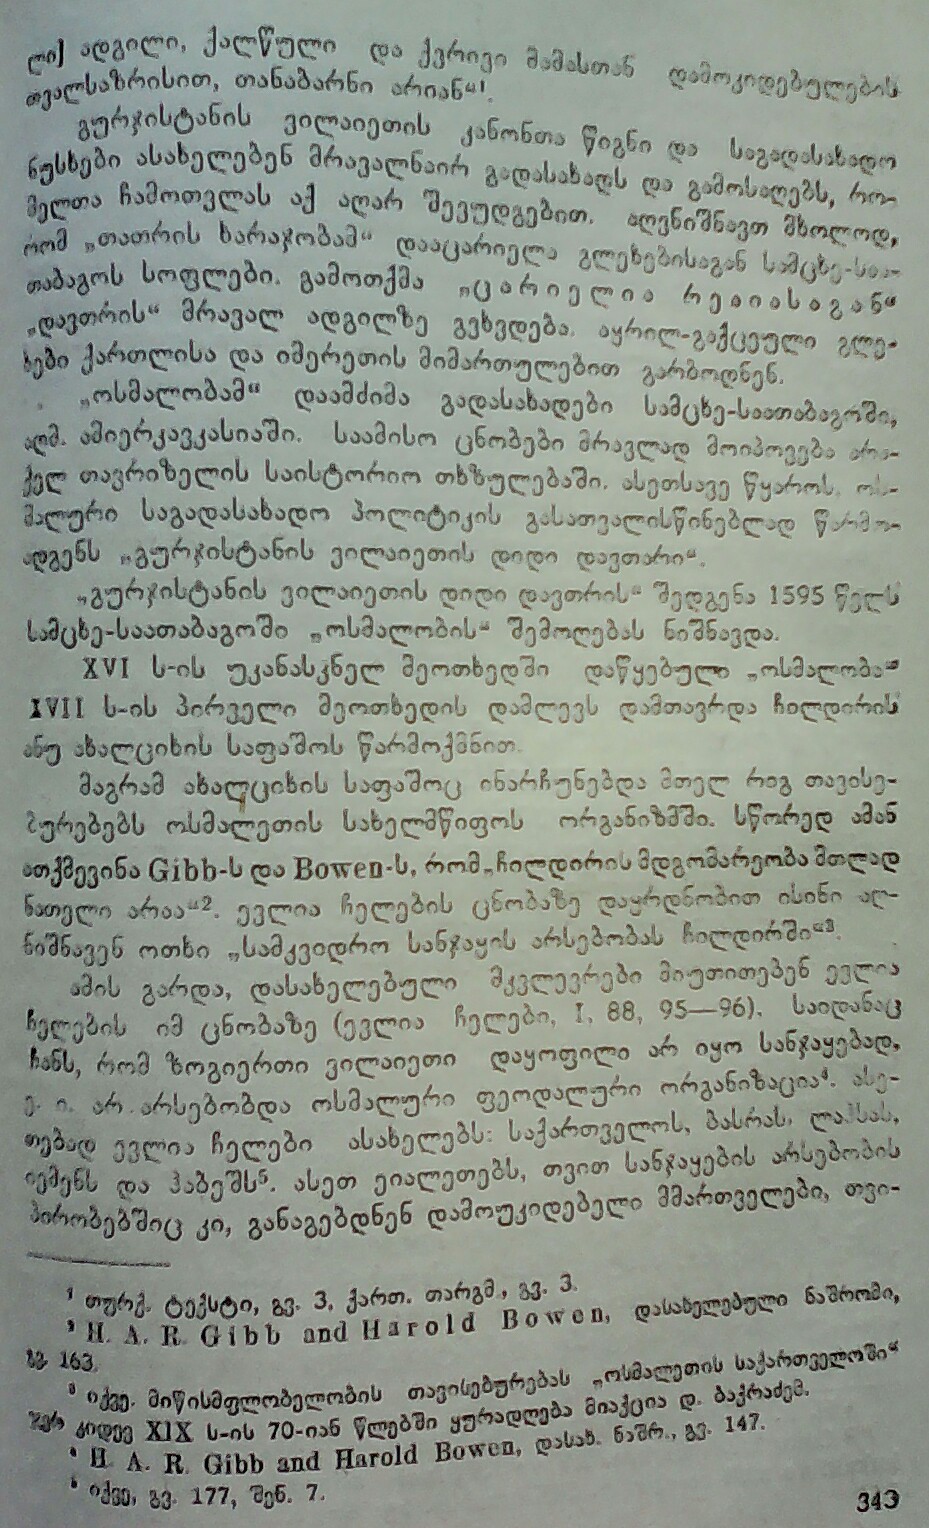 ლი] ადგილი, ქალწული და ქვრივი მამასთან დამოკიდებულების
თვალსაზრისით, თანაბარნი არიან“¹.
გურჯისტანის ვილაიეთის კანონთა წიგნი და საგადასახადო
ნუსხები ასახელებენ მრავალნაირ გადასახადს და გამოსაღებს, რო-
მელთა ჩამოთვლას აქ აღარ შევუდგებით. აღვნიშნავთ მხოლოდ,
რომ „თათრის ხარაჯობამ“ დააცარიელა გლეხებისაგან სამცხე-საა-
თაბაგოს სოფლები. გამოთქმა „ცარიელია რეაიასაგან“
„დავთრის“ მრავალ ადგილზე გვხვდება. აყრილ-გაქცეული გლე-
ხები ქართლისა და იმერეთის მიმართულებით გარბოდნენ.
„ოსმალობამ“ დაამძიმა გადასახადები სამცხე-საათაბაგოში,
აღმ. ამიერკავკასიაში. საამისო ცნობები მრავლად მოიპოვება არა-
ქელ თავრიზელის საისტორიო თხზულებაში. ასეთსავე წყაროს ოს-
მალური საგადასახადო პოლიტიკის გასათვალისწინებლად წარმო-
ადგენს „გურჯისტანის ვილაიეთის დიდი დავთარი“.
„გურჯისტანის ვილაიეთის დიდი დავთრის“ შედგენა 1595 წელს
სამცხე-საათაბაგოში „ოსმალობის“ შემოღებას ნიშნავდა.
XVI ს-ის უკანასკნელ მეოთხედში დაწყებული „ოსმალობა“
XVII ს-ის პირველი მეოთხედის დამლევს დამთავრდა ჩილდირის
ანუ ახალციხის საფაშოს წარმოქმნით.
მაგრამ ახალციხის საფაშოც ინარჩუნებდა მთელ რიგ თავისე-
ბურებებს ოსმალეთის სახელმწიფოს ორგანიზმში. სწორედ ამან
ათქმევინა Gibb-ს და Bowen-ს, რომ „ჩილდირის მდგომარეობა მთლად
ნათელი არაა“². ევლია ჩელების ცნობაზე დაყრდნობით ისინი აღ-
ნიშნავენ ოთხი „სამკვიდრო სანჯაყის არსებობას ჩილდირში“³.
ამის გარდა, დასახელებული მკვლევრები მიუთითებენ ევლია
ჩელების იმ ცნობაზე (ევლია ჩელები, I, 88, 95—96), საიდანაც
ჩანს, რომ ზოგიერთი ვილაიეთი დაყოფილი არ იყო სანჯაყებად,
ე. ი. არ არსებობდა ოსმალური ფეოდალური ორგანიზაცია⁴. ასე-
თებად ევლია ჩელები ასახელებს: საქართველოს, ბასრას, ლაჰსას,
იემენს და ჰაბეშს⁵. ასეთ ეიალეთებს, თვით სანჯაყების არსებობის
პირობებშიც კი, განაგებდნენ დამოუკიდებელი მმართველები, თვი-
¹ თურქ. ტექსტი, გვ. 3, ქართ. თარგმ., გვ. 3.
² H. A. R. Gibb and Harold Bowen, დასახელებული ნაშრომი,
გვ. 163.
³ იქვე. მიწისმფლობელობის თავისებურებას „ოსმალეთის საქართველოში“
ჯერ კიდევ XIX ს-ის 70-იან წლებში ყურადღება მიაქცია დ. ბაქრაძემ.
⁴ H. A. R. Gibb and Harold Bowen, დასახ. ნაშრ., გვ. 147.
⁵ იქვე, გვ. 177, შენ. 7.
343